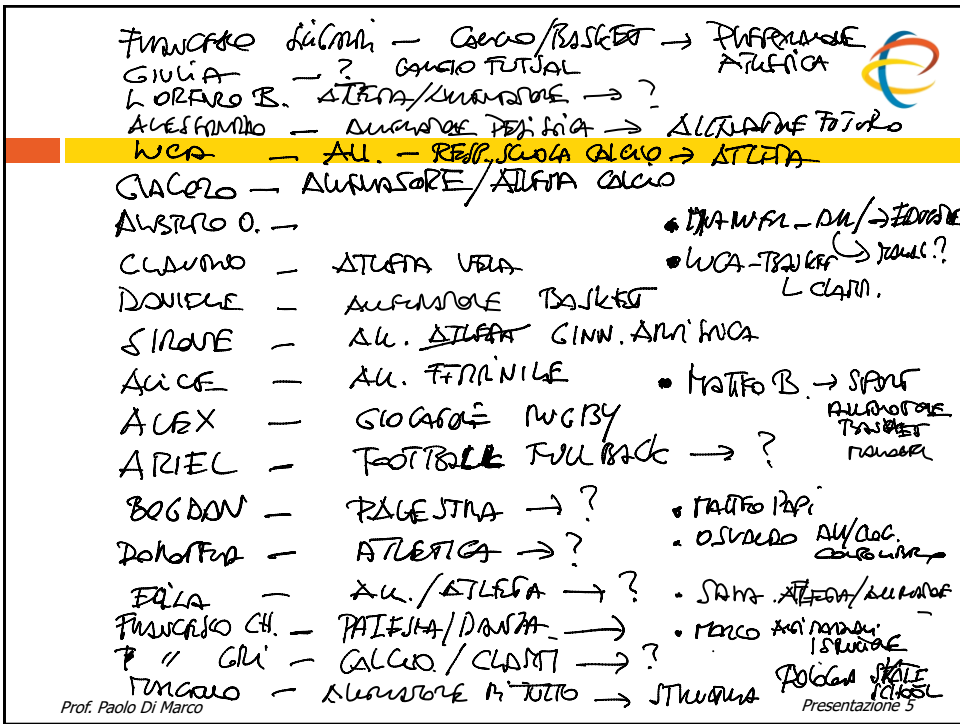 FRANCESCO — CALCIO/BASKET → PREPARAZIONE ATLETICA
GIULIA — ? CALCIO FUTSAL
LORENZO B. ATLETA/ALLENATORE → ?
ALESSANDRO — ALLENATORE → ALLENATORE FUTURO
LUCA — ALL. — RESP. SCUOLA CALCIO → ATLETA
GIACOMO — ALLENATORE/ATLETA CALCIO
ALBERTO O. —
CLAUDIO — ATLETA VELA
DANIELE — ALLENATORE BASKET
SIMONE — ALL. ATLETA GINN. ARTISTICA
ALICE — ALL. FEMMINILE
ALEX — GIOCATORE RUGBY
ARIEL — FOOTBALL FULLBACK → ?
BOGDAN — PALESTRA → ?
DOROTEA — ATLETICA → ?
— ALL./ATLETA → ?
FRANCESCO CH. — PALESTRA/DANZA →
" GRI — CALCIO / → ?
— ALLENATORE DI TUTTO → STRUTTURA
• MANUEL — ALL/→
• LUCA — BASKET
• MATTEO B. → SPORT
ALLENATORE
BASKET
MANAGER
• MATTEO PAPI
• OSVALDO
• SARA ATLETA/ALLENATORE
• MARCO
ISTRUTTORE
BOLOGNA SKATE SCHOOL
Prof. Paolo Di Marco
Presentazione 5